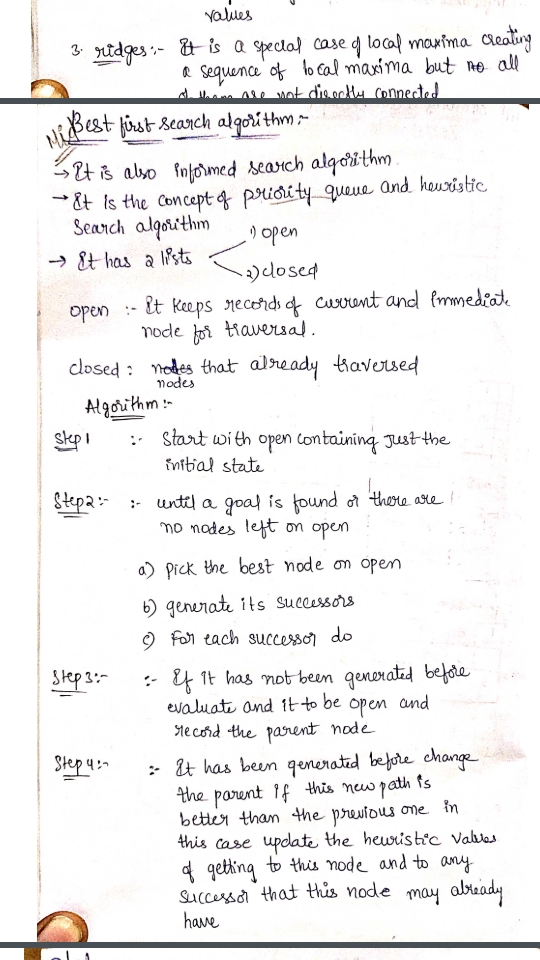 values
3. ridges :- It is a special case of local maxima creating
a sequence of local maxima but no all
of them are not directly connected
Mid
Best first search algorithm :-
→ It is also informed search algorithm.
→ It is the concept of priority queue and heuristic
Search algorithm
→ It has 2 lists
1) open
2) closed
open :- It keeps records of current and immediate
node for traversal.
closed : nodes that already traversed
nodes
Algorithm :-
Step 1 :- Start with open containing just the
initial state
Step 2 :- :- until a goal is found or there are
no nodes left on open
a) pick the best node on open
b) generate its successors
c) for each successor do
Step 3 :- :- If it has not been generated before
evaluate and it to be open and
record the parent node
Step 4 :- :- It has been generated before change
the parent if this new path is
better than the previous one in
this case update the heuristic values
of getting to this node and to any
successor that this node may already
have